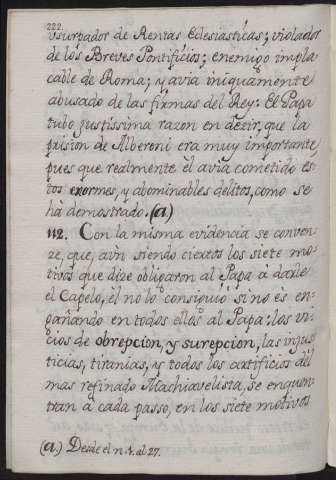 222.
vsurpador de Rentas Eclesiasticas; violador
de los Breves Pontificios; enemigo impla
cable de Roma; y avia iniquamente
abusado de las firmas del Rey: El Papa
tubo justissima razon en dezir, que la
prision de Alberoni era muy importante,
pues que realmente el avia cometido es-
tos exormes, y abominables delitos, como se
hà demostrado. (a)
112. Con la misma evidencia se conven-
ze, que, aùn siendo ciertos los siete mo-
tivos que dize obligaron al Papa à darle
el Capelo, èl no lo consiguiò si no ès en-
gañando en todos ellos al Papa: los vi-
cios de obrepcion, y surepcion, las injus-
ticias, tiranias, y todos los artificios del
mas refinado Machiavelista, se enquen-
tran à cada passo, en los siete motivos
(a) Desde el n. 4. al 27.